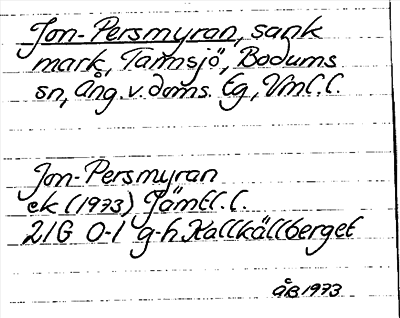 Jon-Persmyran, sank
mark, Tarmsjö, Bodums
sn, Ång. v. doms. Eg, Vml. l.
Jon-Persmyran
ek (1973) Jämtl. l.
21G 0-1 g-h Kallkällberget
ÅB 1973